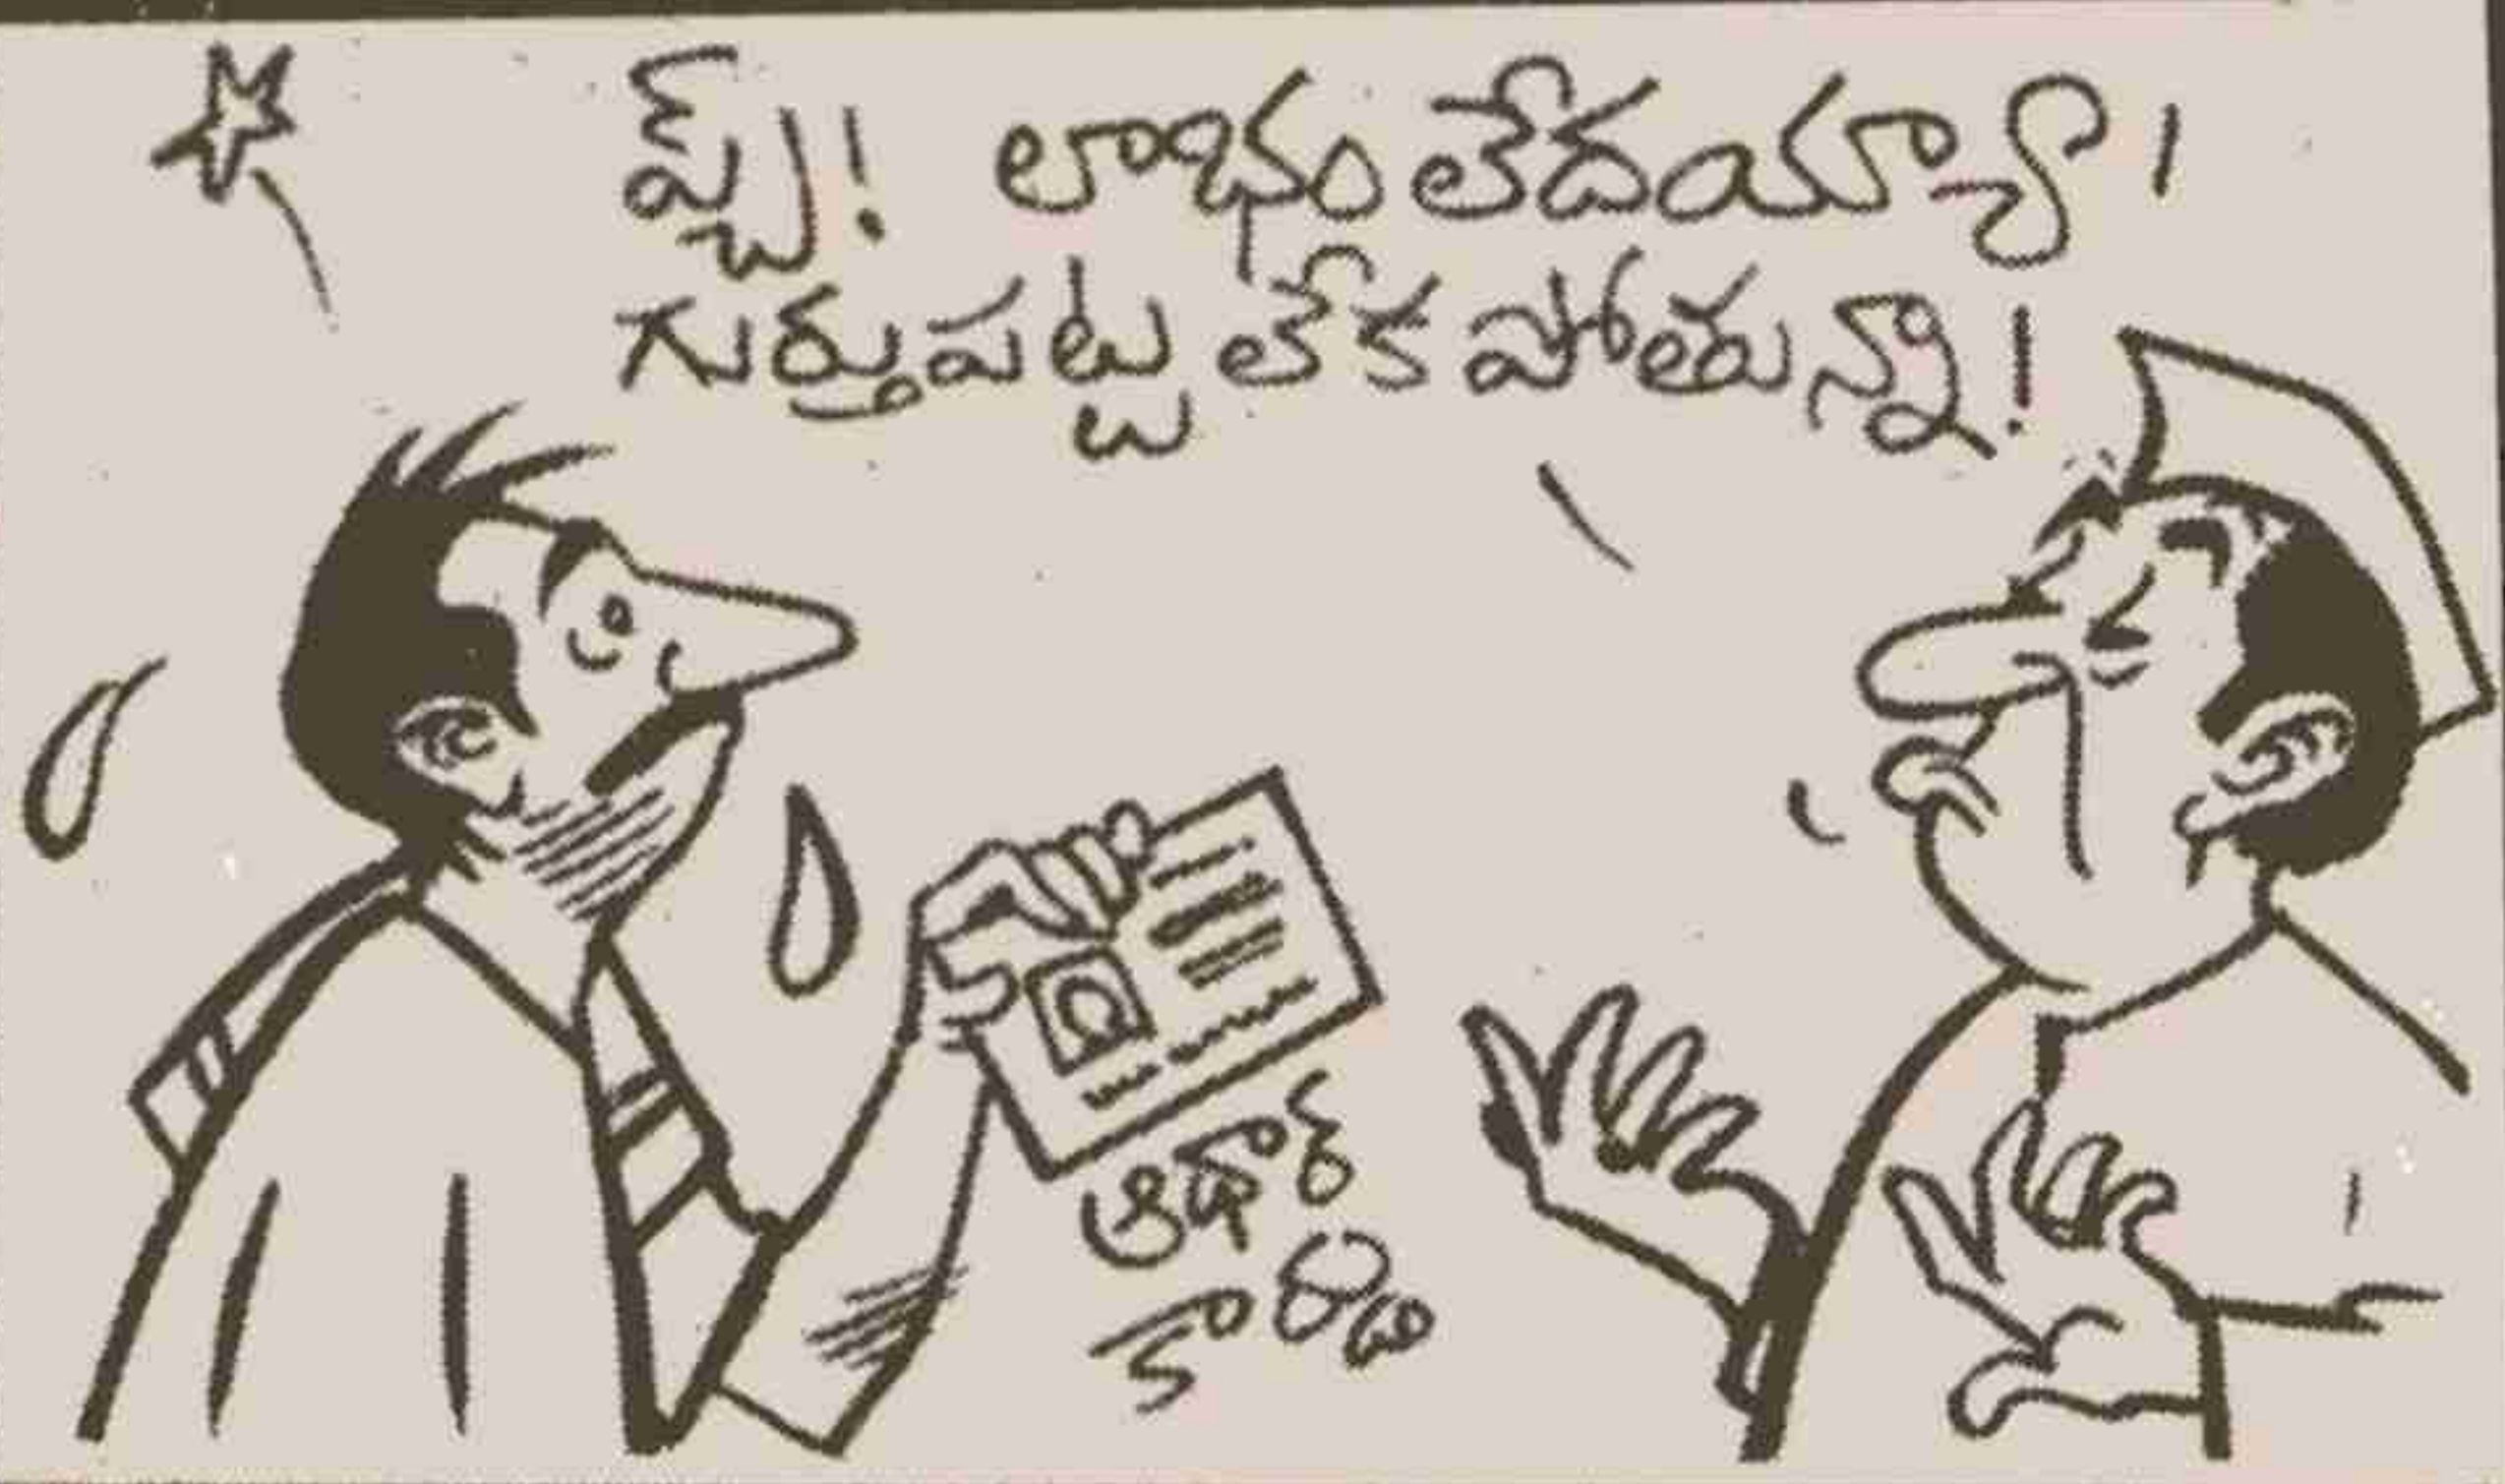 ప్చ్! లాభంలేదయ్యా!
గుర్తుపట్టలేకపోతున్నా!
ఆధార్
కార్డు